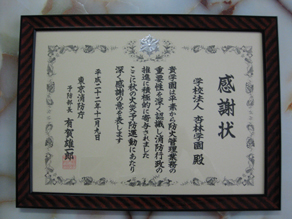 感謝状
学校法人 杏林学園 殿
貴学園は平素から防火管理業務の
重要性を深く認識し消防行政の
推進に積極的に寄与されました
ここに秋の火災予防運動にあたり
深く感謝の意を表します
平成二十一年十一月九日
東京消防庁
予防部長 有賀雄一郎